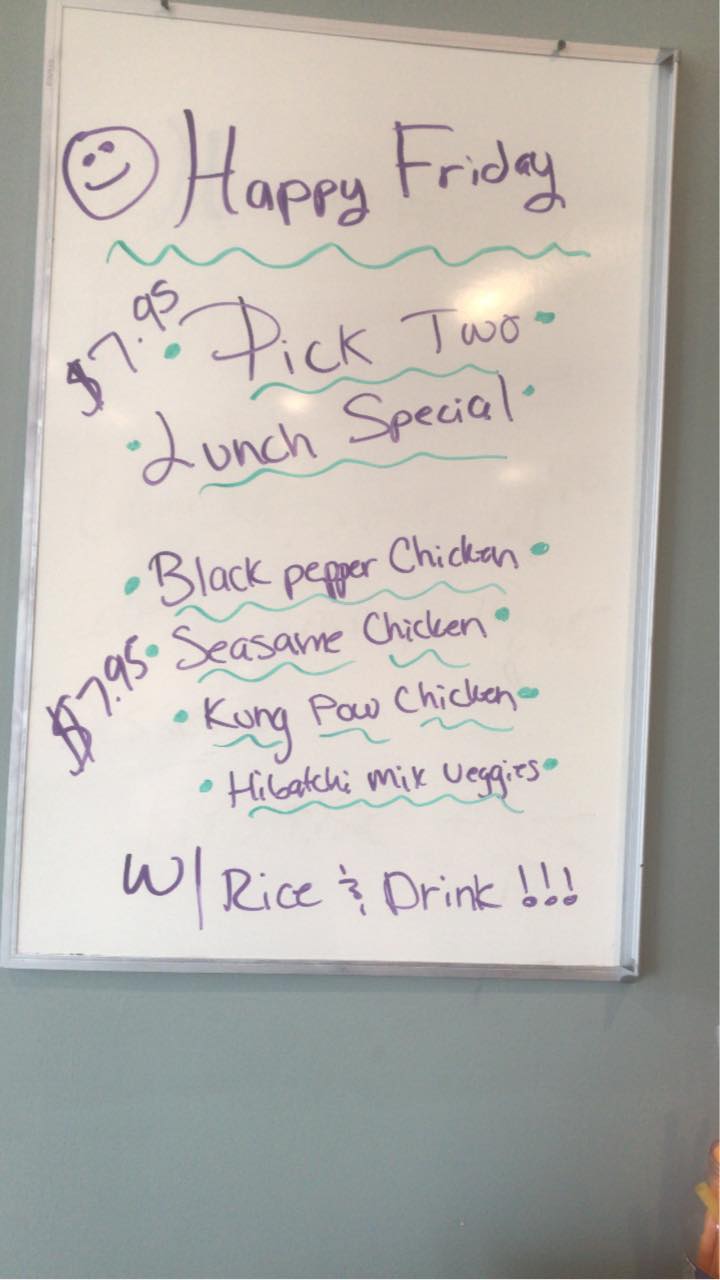 Happy Friday
$7.95
Pick Two
Lunch Special
Black pepper Chicken
Seasame Chicken
$7.95
Kung Pow Chicken
Hibatchi mix veggies
W/ Rice & Drink !!!